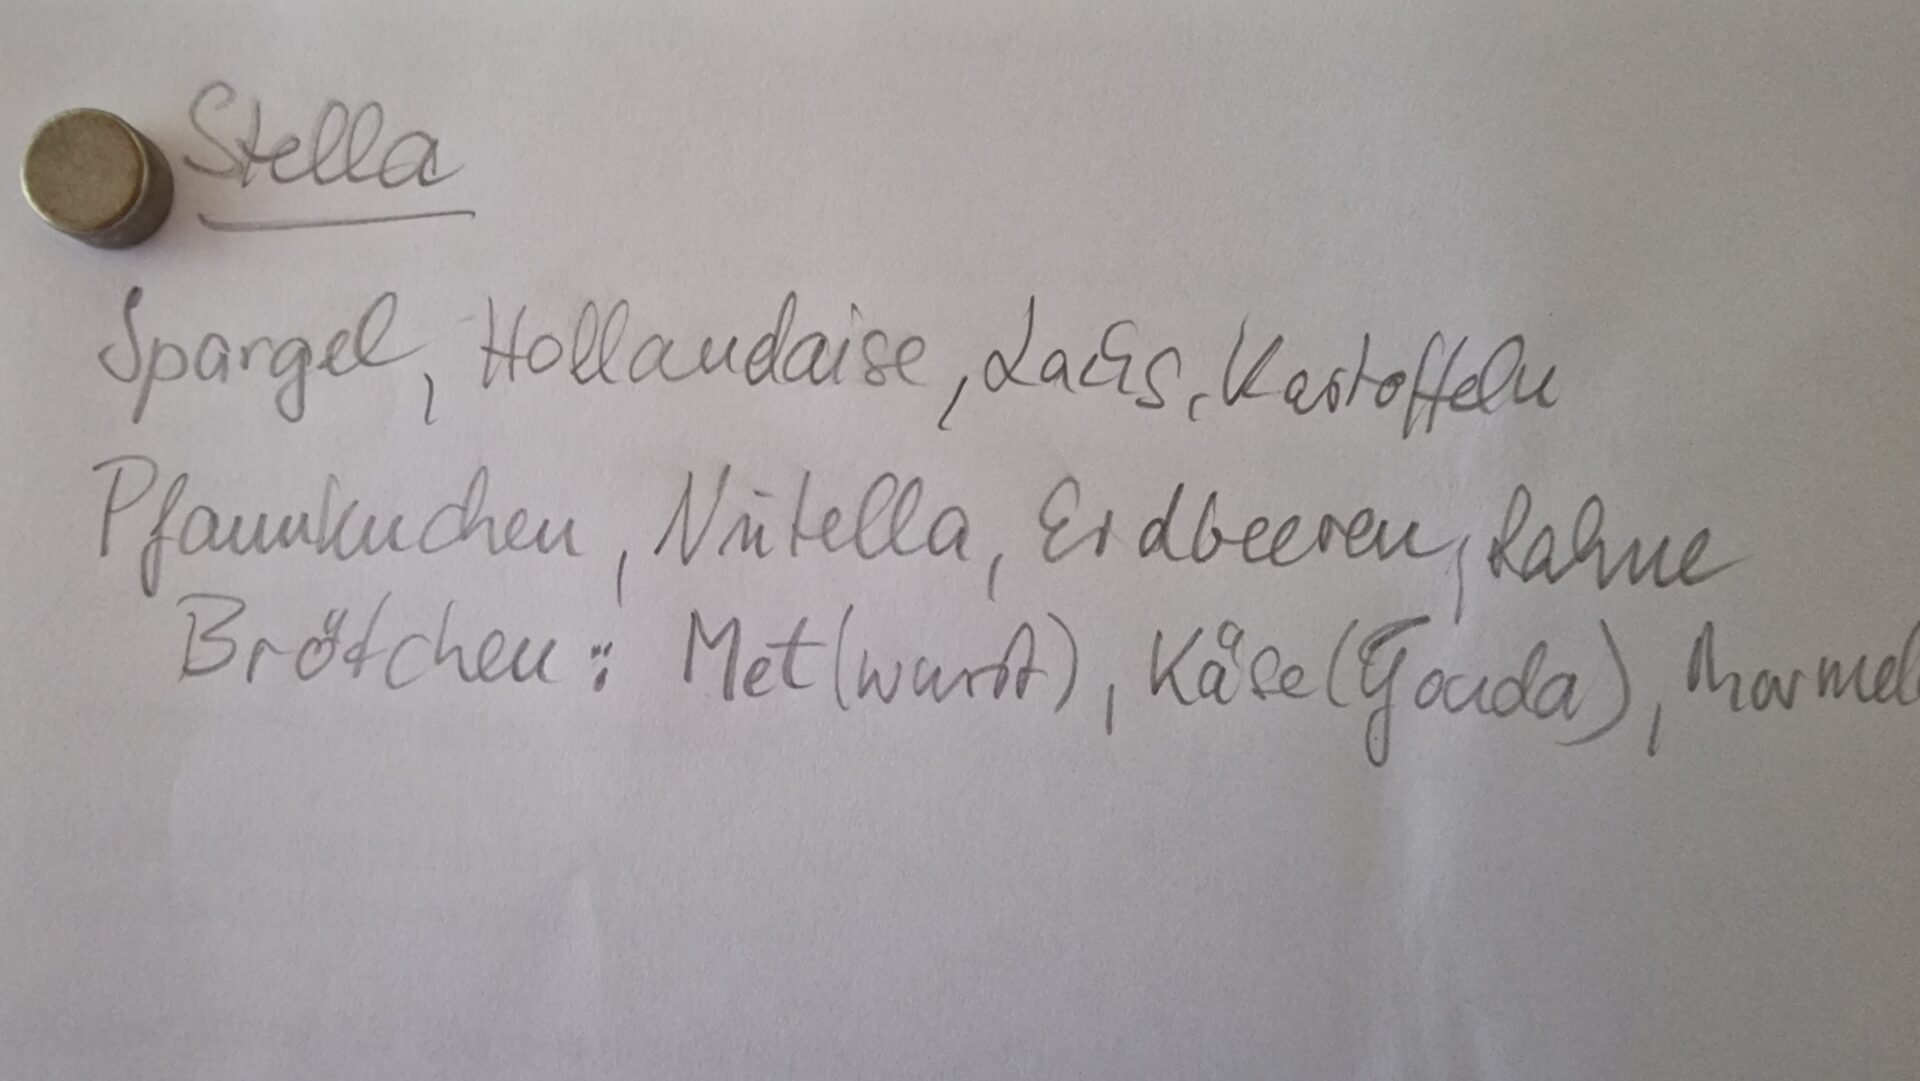 Stella
Spargel, Hollandaise, Lachs, Kartoffeln
Pfannkuchen, Nutella, Erdbeeren, Sahne
Brötchen: Met(wurst), Käse(Gouda), Marmel